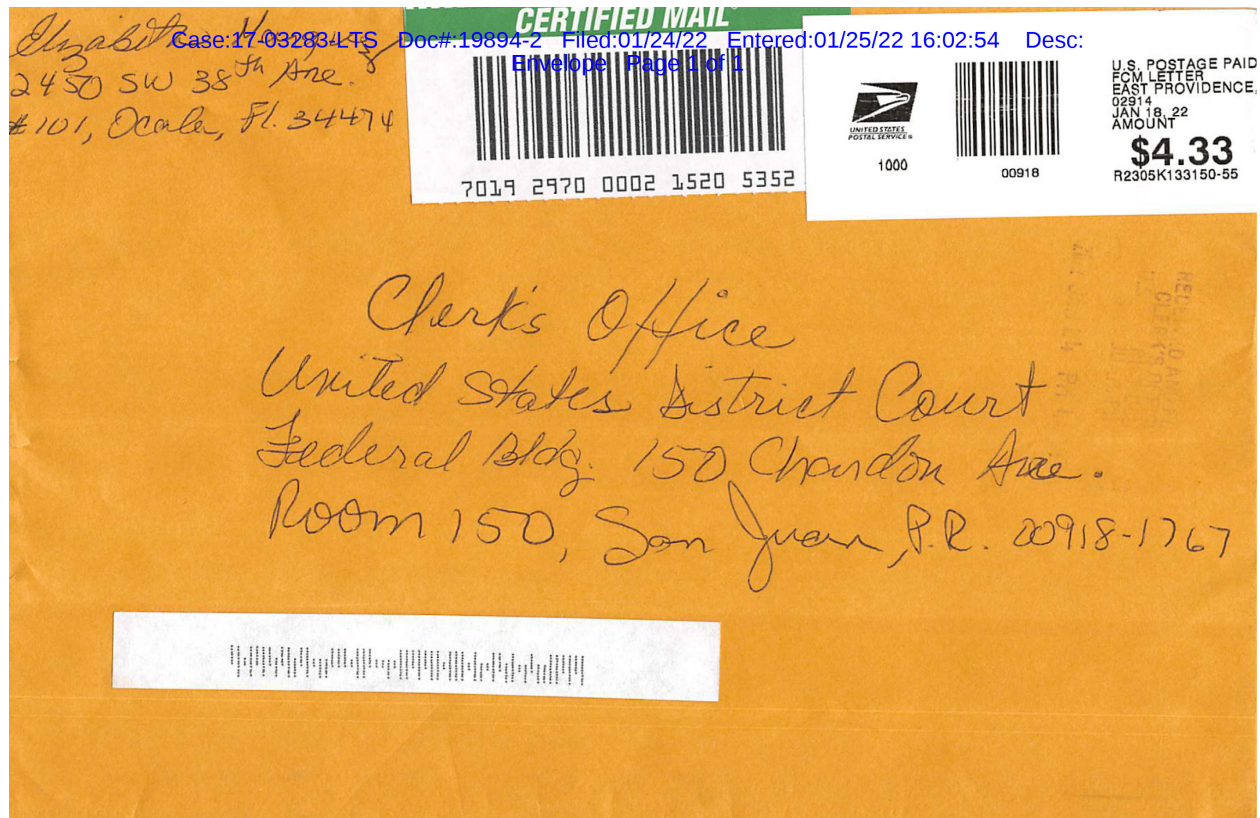 CERTIFIED MAIL
Case:17-03283-LTS Doc#:19894-2 Filed:01/24/22 Entered:01/25/22 16:02:54 Desc:
Envelope Page 1 of 1
Elizabeth
2450 SW 38th Ave.
#101, Ocala, Fl. 34474
7019 2970 0002 1520 5352
UNITED STATES
POSTAL SERVICE®
1000
00918
U.S. POSTAGE PAID
FCM LETTER
EAST PROVIDENCE,
02914
JAN 18, 22
AMOUNT
$4.33
R2305K133150-55
Clerk's Office
United States District Court
Federal Bldg. 150 Chardon Ave.
Room 150, San Juan, P.R. 00918-1767